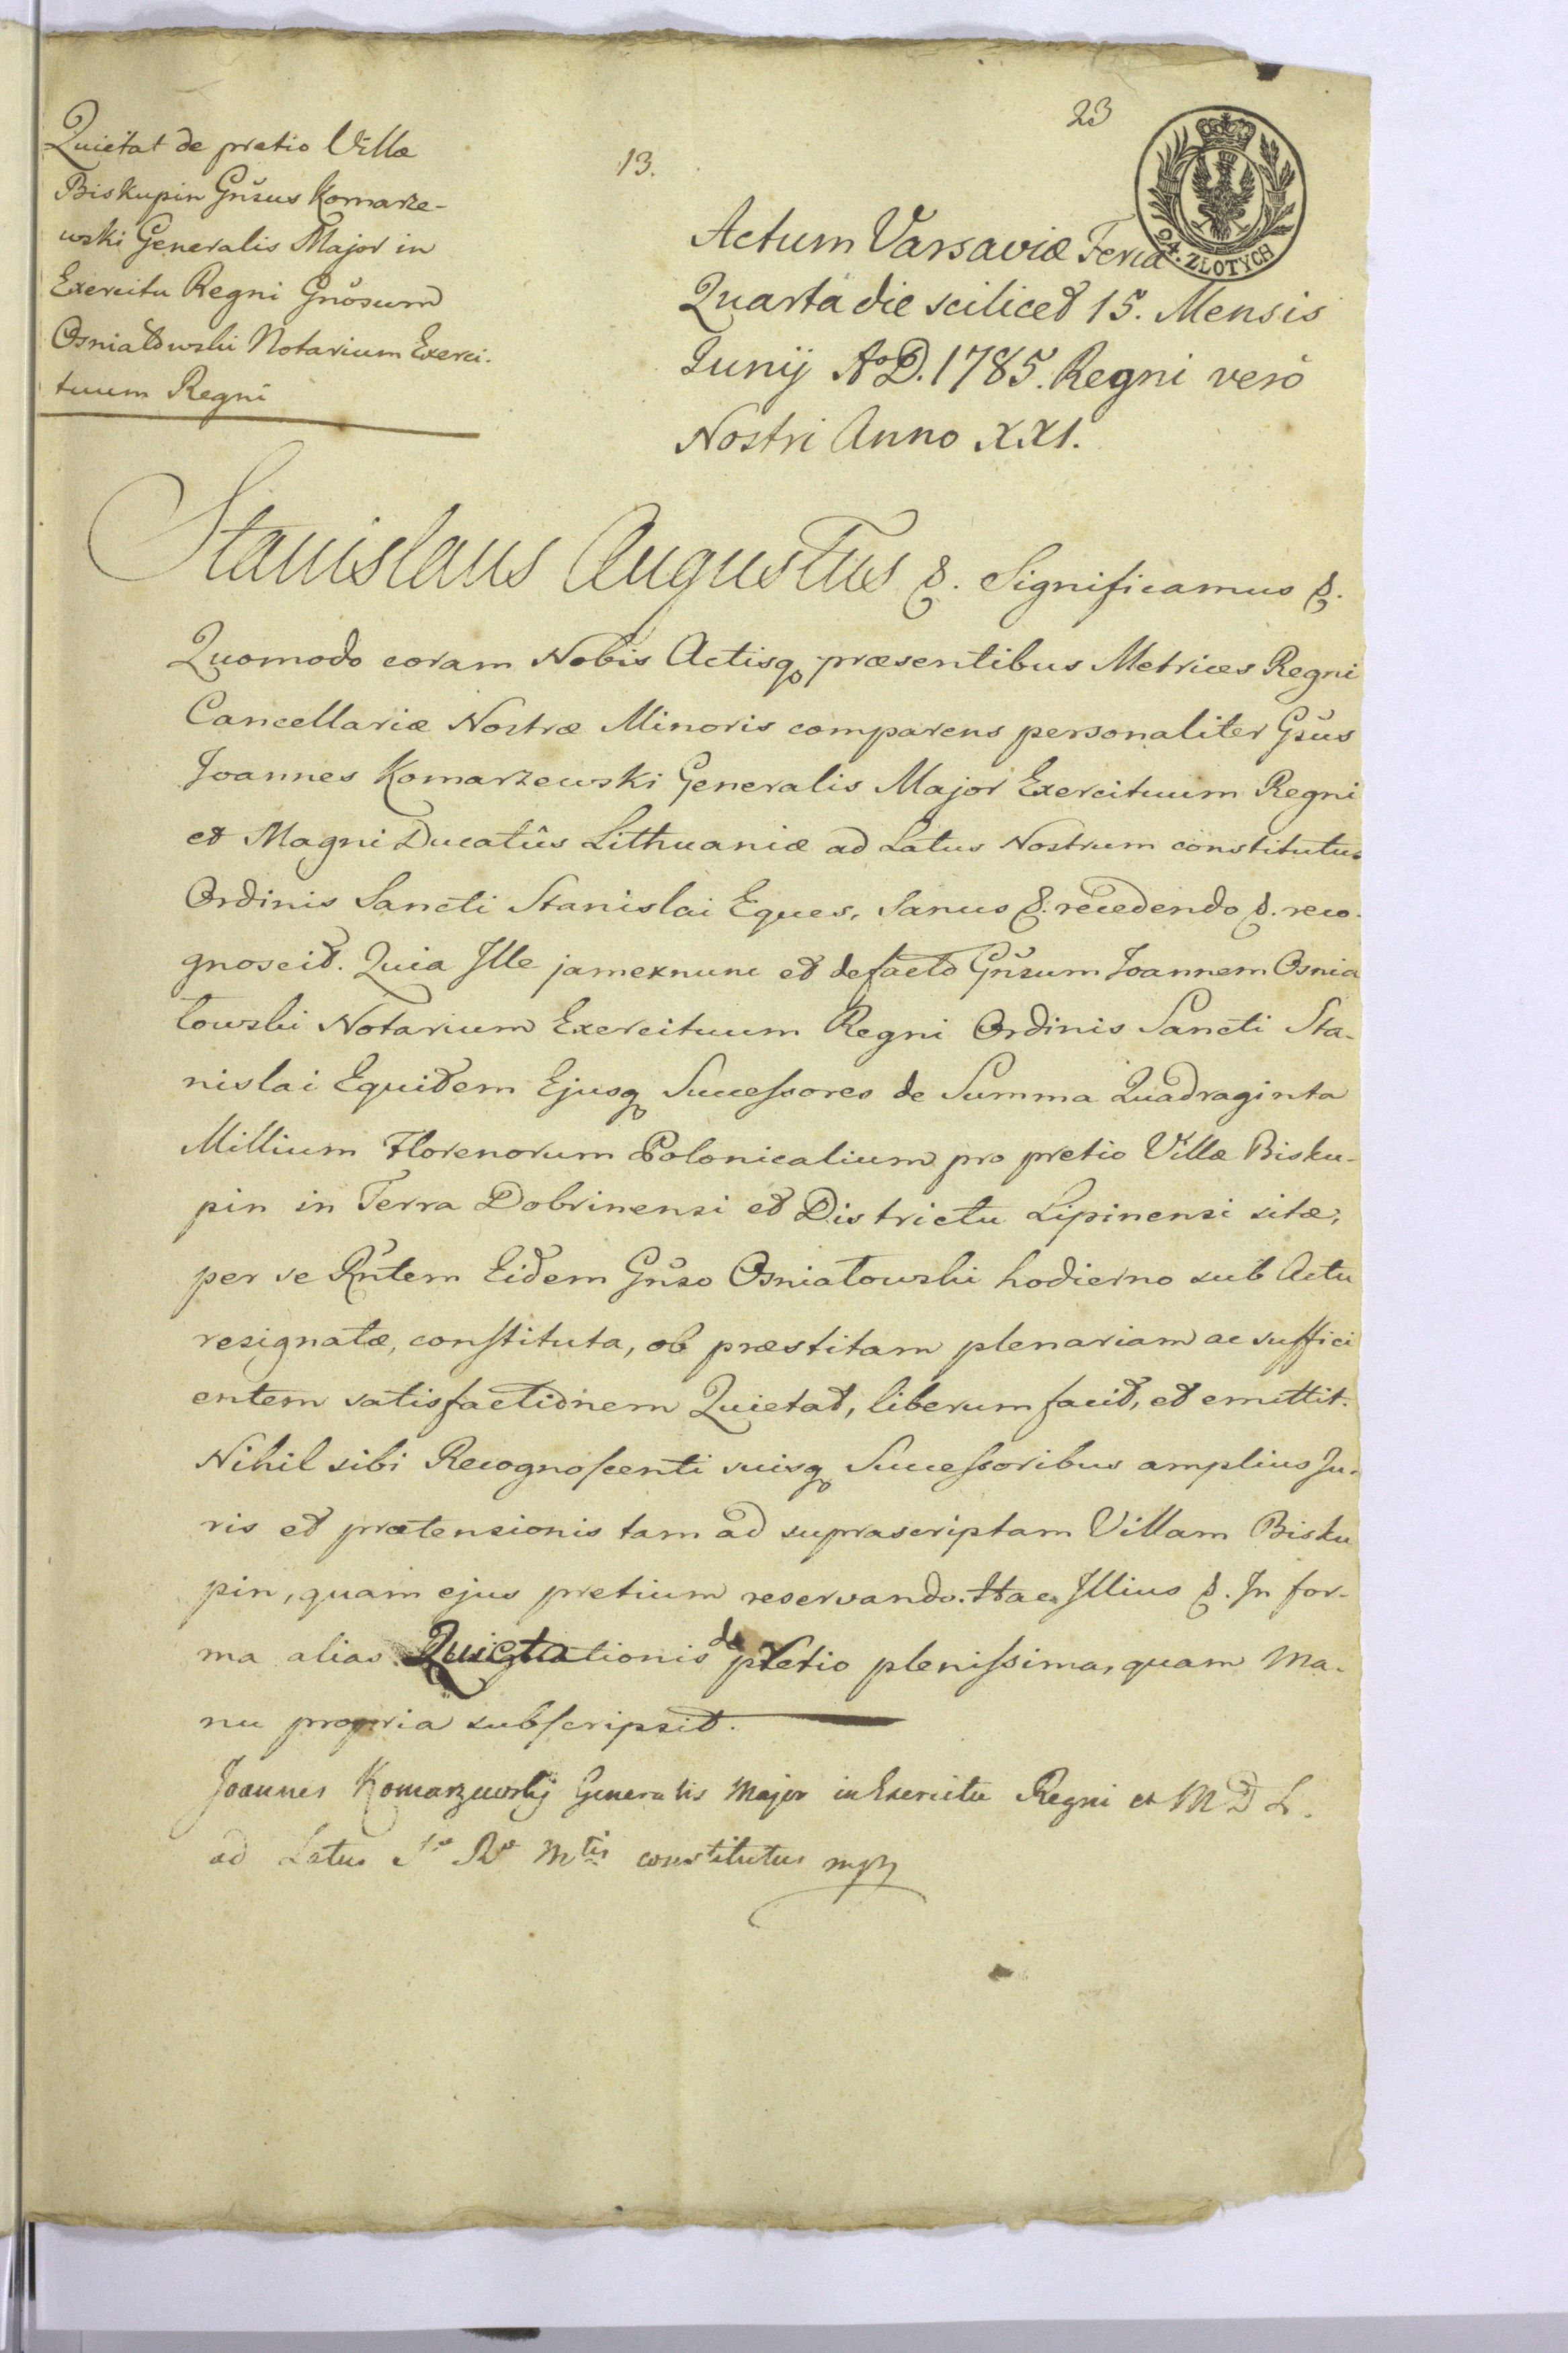 Quietat de pretio Villæ
Biskupin Gn̄sus Komarze-
wski Generalis Major in
Exercitu Regni Gn̄osum
Osniałowski Notarium Exerci-
tuum Regni
13.
23
24. ZŁOTYCH
Actum Varsaviæ Feria
Quarta die scilicet 15. Mensis
Junij A°D. 1785. Regni verò
Nostri Anno XXI.
Stanislaus Augustus &. Significamus &.
Quomodo coram Nobis Actisq; præsentibus Metrices Regni
Cancellariæ Nostræ Minoris comparens personaliter Gsūs
Joannes Komarzewski Generalis Major Exercituum Regni
et Magni Ducatûs Lithuaniæ ad Latus Nostrum constitutus
Ordinis Sancti Stanislai Eques, Sanus &. recedendo &. reco-
gnoscit. Quia Ille jamexnunc et defacto Gn̄sum Joannem Osnia
łowski Notarium Exercituum Regni Ordinis Sancti Sta-
nislai Equidem Ejusq; Successores de Summa Quadraginta
Millium Florenorum Polonicalium pro pretio Villæ Bisku-
pin in Terra Dobrinensi et Districtu Lipinensi sitæ,
per se Rn̄tem Eidem Gn̄so Osniałowski hodierno sub Actu
resignatæ, constituta, ob præstitam plenariam ac suffici
entem satisfactionem Quietat, liberum facit, et emittit.
Nihil sibi Recognoscenti suisq; Successoribus amplius Ju-
ris et prætensionis tam ad suprascriptam Villam Bisku
pin, quam ejus pretium reservando. Hac Illius &. In for-
ma alias Quietationis de pretio plenissima, quam Ma-
nu propria subscripsit.
Joannes Komarzewskj Generalis Major in Exercitu Regni et M D L.
ad Latus S° R° Mtis constitutus mpp